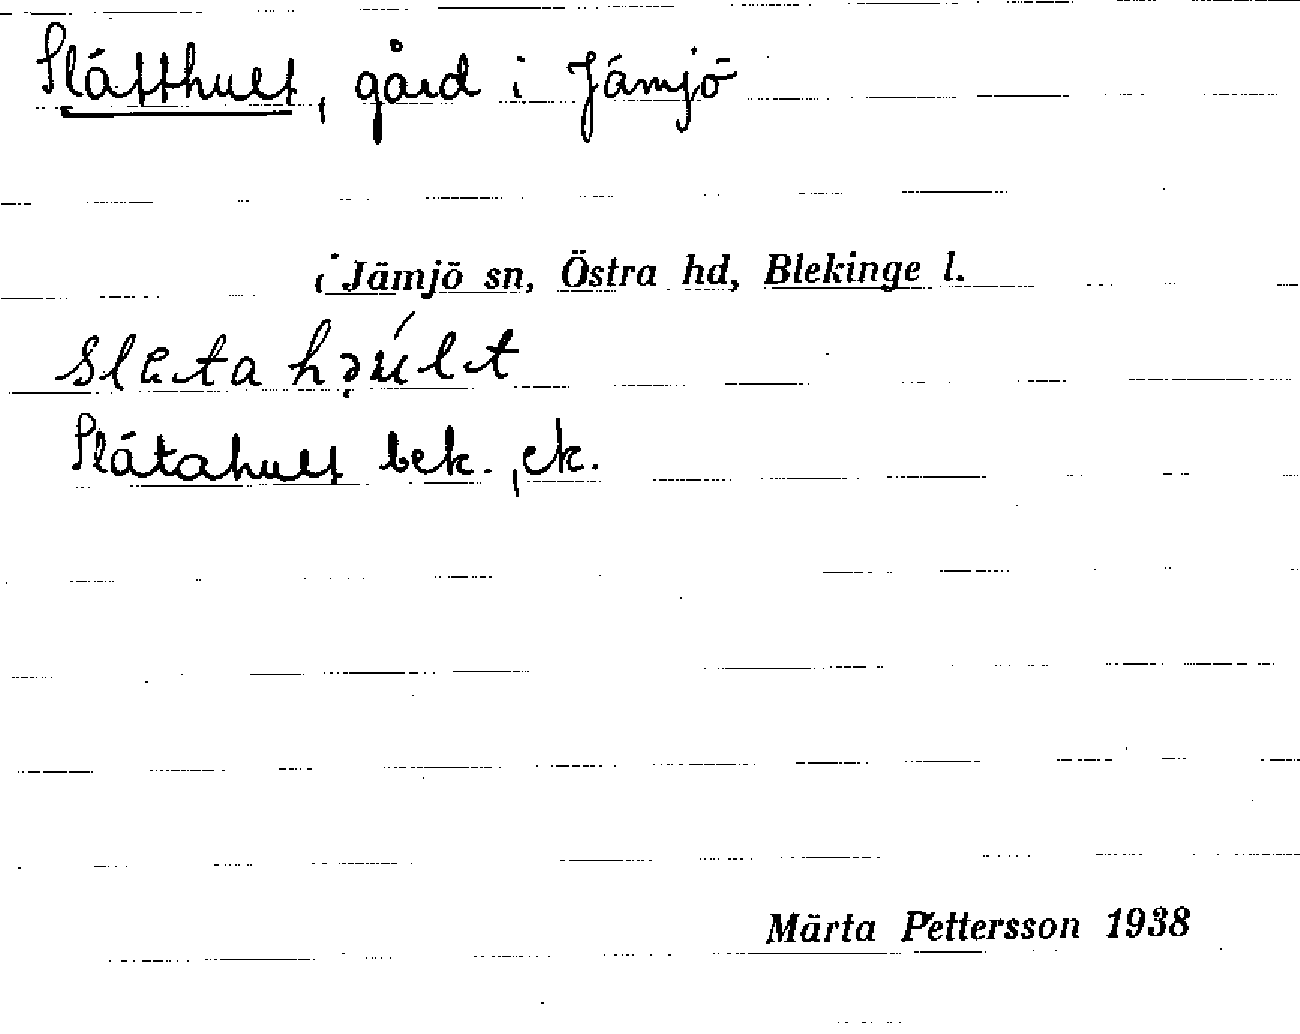 Slätthult, gård i Jämjö
i Jämjö sn, Östra hd, Blekinge l.
slɛta həu̇́lt
Slätahult bek., ek.
Märta Pettersson 1938